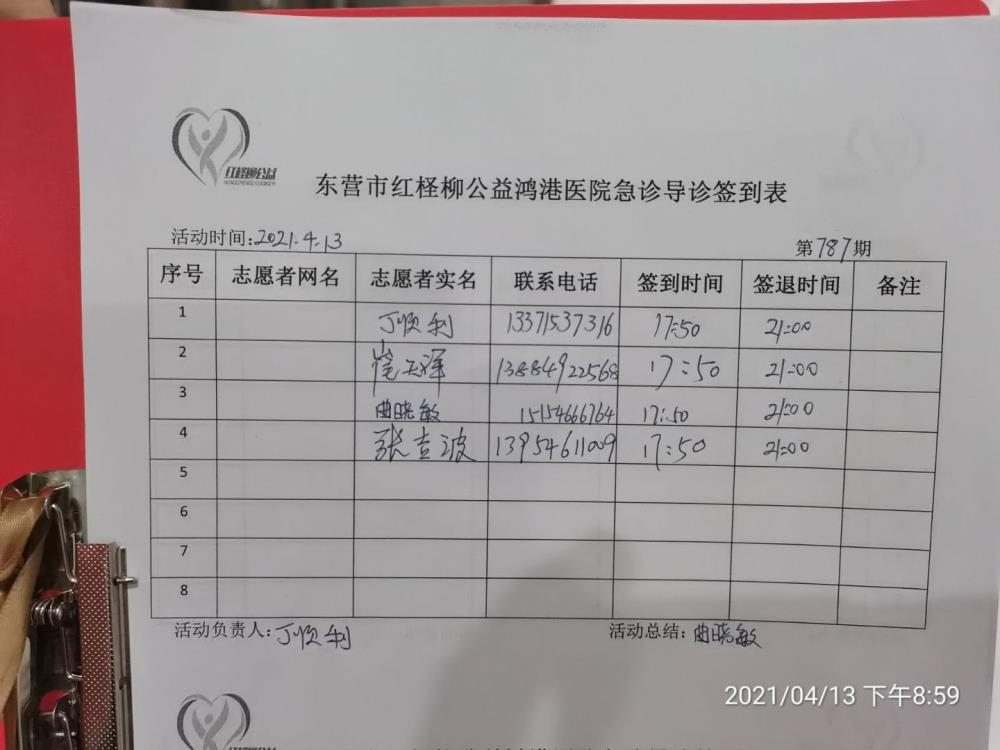 红柽柳公益
东营市红柽柳公益鸿港医院急诊导诊签到表
活动时间:2021.4.13
第787期
序号 志愿者网名 志愿者实名 联系电话 签到时间 签退时间 备注
1 丁顺利 13371537316 17:50 21:00
2 崔天泽 13884922568 17:50 21:00
3 曲晓敏 15154666764 17:50 21:00
4 张吉波 13954611009 17:50 21:00
5
6
7
8
活动负责人:丁顺利
活动总结:曲晓敏
2021/04/13 下午8:59